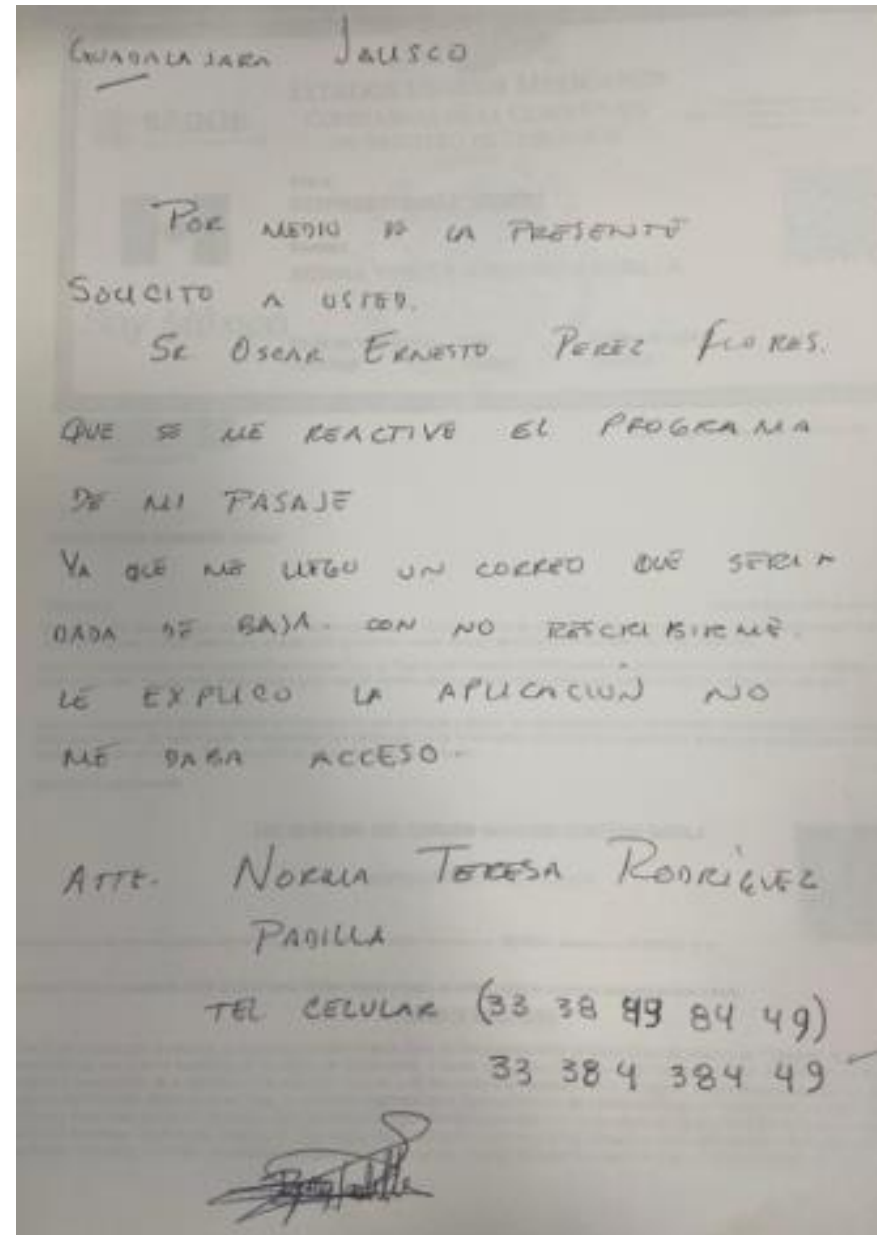 GUADALAJARA JALISCO
POR MEDIO DE LA PRESENTE
SOLICITO A USTED.
SR OSCAR ERNESTO PEREZ FLORES.
QUE SE ME REACTIVE EL PROGRAMA
DE MI PASAJE
YA QUE ME LLEGO UN CORREO QUE SERIA
DADA DE BAJA. CON NO RESCRIBIRME.
LE EXPLICO LA APLICACIÓN NO
ME DABA ACCESO.
ATTE. NORMA TERESA RODRÍGUEZ
PADILLA
TEL CELULAR (33 38 49 84 49)
33 384 384 49